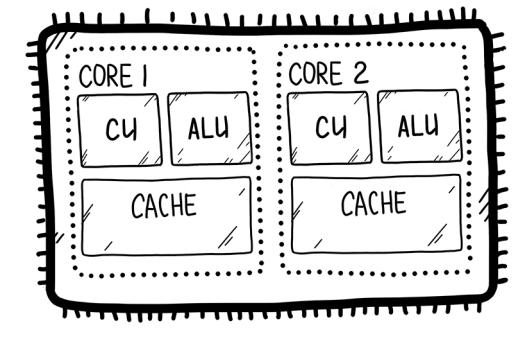 CORE 1
CU ALU
CACHE
CORE 2
CU ALU
CACHE